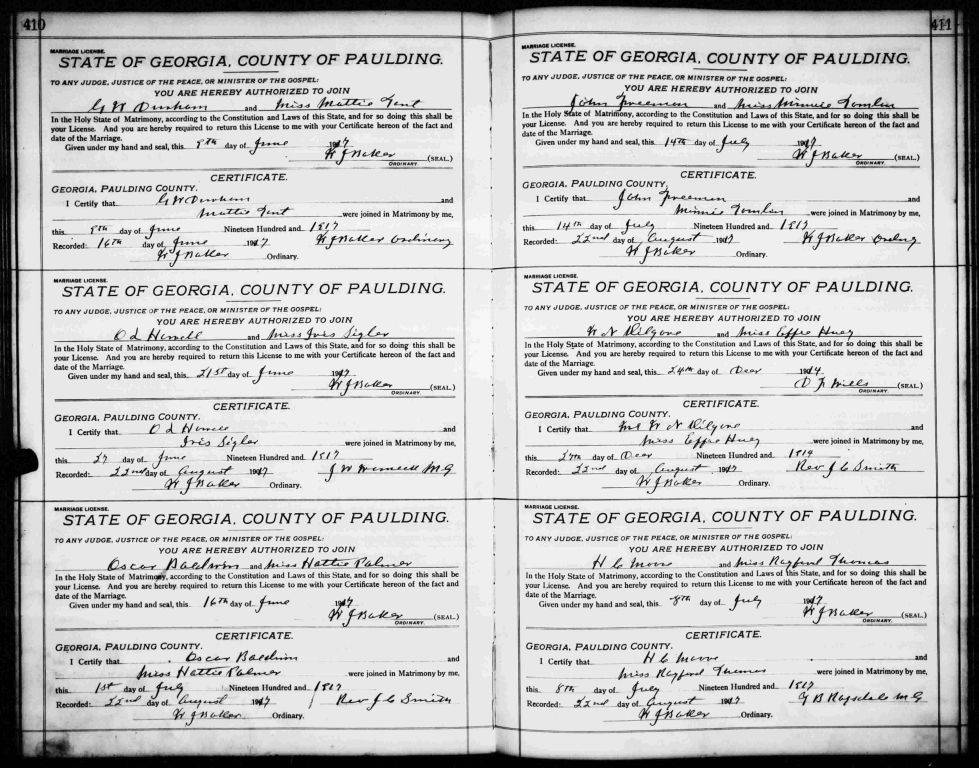 410
MARRIAGE LICENSE.
STATE OF GEORGIA, COUNTY OF PAULDING.
TO ANY JUDGE, JUSTICE OF THE PEACE, OR MINISTER OF THE GOSPEL:
YOU ARE HEREBY AUTHORIZED TO JOIN
G W Durham and Miss Mattie Gent
In the Holy State of Matrimony, according to the Constitution and Laws of this State, and for so doing this shall be
your License. And you are hereby required to return this License to me with your Certificate hereon of the fact and
date of the Marriage.
Given under my hand and seal, this 8th day of June 1917
W J Baker (SEAL.)
ORDINARY.
CERTIFICATE.
GEORGIA, PAULDING COUNTY.
I Certify that G W Durham and
Mattie Gent were joined in Matrimony by me,
this 8th day of June Nineteen Hundred and 1917
Recorded: 16th day of June 1917 W J Baker Ordinary
W J Baker Ordinary.
MARRIAGE LICENSE.
STATE OF GEORGIA, COUNTY OF PAULDING.
TO ANY JUDGE, JUSTICE OF THE PEACE, OR MINISTER OF THE GOSPEL:
YOU ARE HEREBY AUTHORIZED TO JOIN
O L and Miss Iris Sigler
In the Holy State of Matrimony, according to the Constitution and Laws of this State, and for so doing this shall be
your License. And you are hereby required to return this License to me with your Certificate hereon of the fact and
date of the Marriage.
Given under my hand and seal, this 21st day of June 1917
W J Baker (SEAL.)
ORDINARY.
CERTIFICATE.
GEORGIA, PAULDING COUNTY.
I Certify that O L and
Iris Sigler were joined in Matrimony by me,
this 27 day of June Nineteen Hundred and 1917
Recorded: 22nd day of August 1917 J W M G
W J Baker Ordinary.
MARRIAGE LICENSE.
STATE OF GEORGIA, COUNTY OF PAULDING.
TO ANY JUDGE, JUSTICE OF THE PEACE, OR MINISTER OF THE GOSPEL:
YOU ARE HEREBY AUTHORIZED TO JOIN
Oscar Baldwin and Miss Hattie Palmer
In the Holy State of Matrimony, according to the Constitution and Laws of this State, and for so doing this shall be
your License. And you are hereby required to return this License to me with your Certificate hereon of the fact and
date of the Marriage.
Given under my hand and seal, this 16th day of June 1917
W J Baker (SEAL.)
ORDINARY.
CERTIFICATE.
GEORGIA, PAULDING COUNTY.
I Certify that Oscar Baldwin and
Miss Hattie Palmer were joined in Matrimony by me,
this 1st day of July Nineteen Hundred and 1917
Recorded: 22nd day of August 1917 Rev J C Smith
W J Baker Ordinary.
411
MARRIAGE LICENSE.
STATE OF GEORGIA, COUNTY OF PAULDING.
TO ANY JUDGE, JUSTICE OF THE PEACE, OR MINISTER OF THE GOSPEL:
YOU ARE HEREBY AUTHORIZED TO JOIN
John Freeman and Miss Minnie Tomlin
In the Holy State of Matrimony, according to the Constitution and Laws of this State, and for so doing this shall be
your License. And you are hereby required to return this License to me with your Certificate hereon of the fact and
date of the Marriage.
Given under my hand and seal, this 14th day of July 1917
W J Baker (SEAL.)
ORDINARY.
CERTIFICATE.
GEORGIA, PAULDING COUNTY.
I Certify that John Freeman and
Minnie Tomlin were joined in Matrimony by me,
this 14th day of July Nineteen Hundred and 1917
Recorded: 22nd day of August 1917 W J Baker
W J Baker Ordinary.
MARRIAGE LICENSE.
STATE OF GEORGIA, COUNTY OF PAULDING.
TO ANY JUDGE, JUSTICE OF THE PEACE, OR MINISTER OF THE GOSPEL:
YOU ARE HEREBY AUTHORIZED TO JOIN
W N and Miss Effie Huey
In the Holy State of Matrimony, according to the Constitution and Laws of this State, and for so doing this shall be
your License. And you are hereby required to return this License to me with your Certificate hereon of the fact and
date of the Marriage.
Given under my hand and seal, this 24th day of 1914
Mills (SEAL.)
ORDINARY.
CERTIFICATE.
GEORGIA, PAULDING COUNTY.
I Certify that W N and
Miss Effie Huey were joined in Matrimony by me,
this 27th day of Nineteen Hundred and 1914
Recorded: 22nd day of August 1917 Rev J C Smith
W J Baker Ordinary.
MARRIAGE LICENSE.
STATE OF GEORGIA, COUNTY OF PAULDING.
TO ANY JUDGE, JUSTICE OF THE PEACE, OR MINISTER OF THE GOSPEL:
YOU ARE HEREBY AUTHORIZED TO JOIN
H C Moore and Miss Thomas
In the Holy State of Matrimony, according to the Constitution and Laws of this State, and for so doing this shall be
your License. And you are hereby required to return this License to me with your Certificate hereon of the fact and
date of the Marriage.
Given under my hand and seal, this 8th day of July 1917
W J Baker (SEAL.)
ORDINARY.
CERTIFICATE.
GEORGIA, PAULDING COUNTY.
I Certify that H C Moore and
Miss Thomas were joined in Matrimony by me,
this 8th day of July Nineteen Hundred and 1917
Recorded: 22nd day of August 1917 G B Ragsdale M G
W J Baker Ordinary.